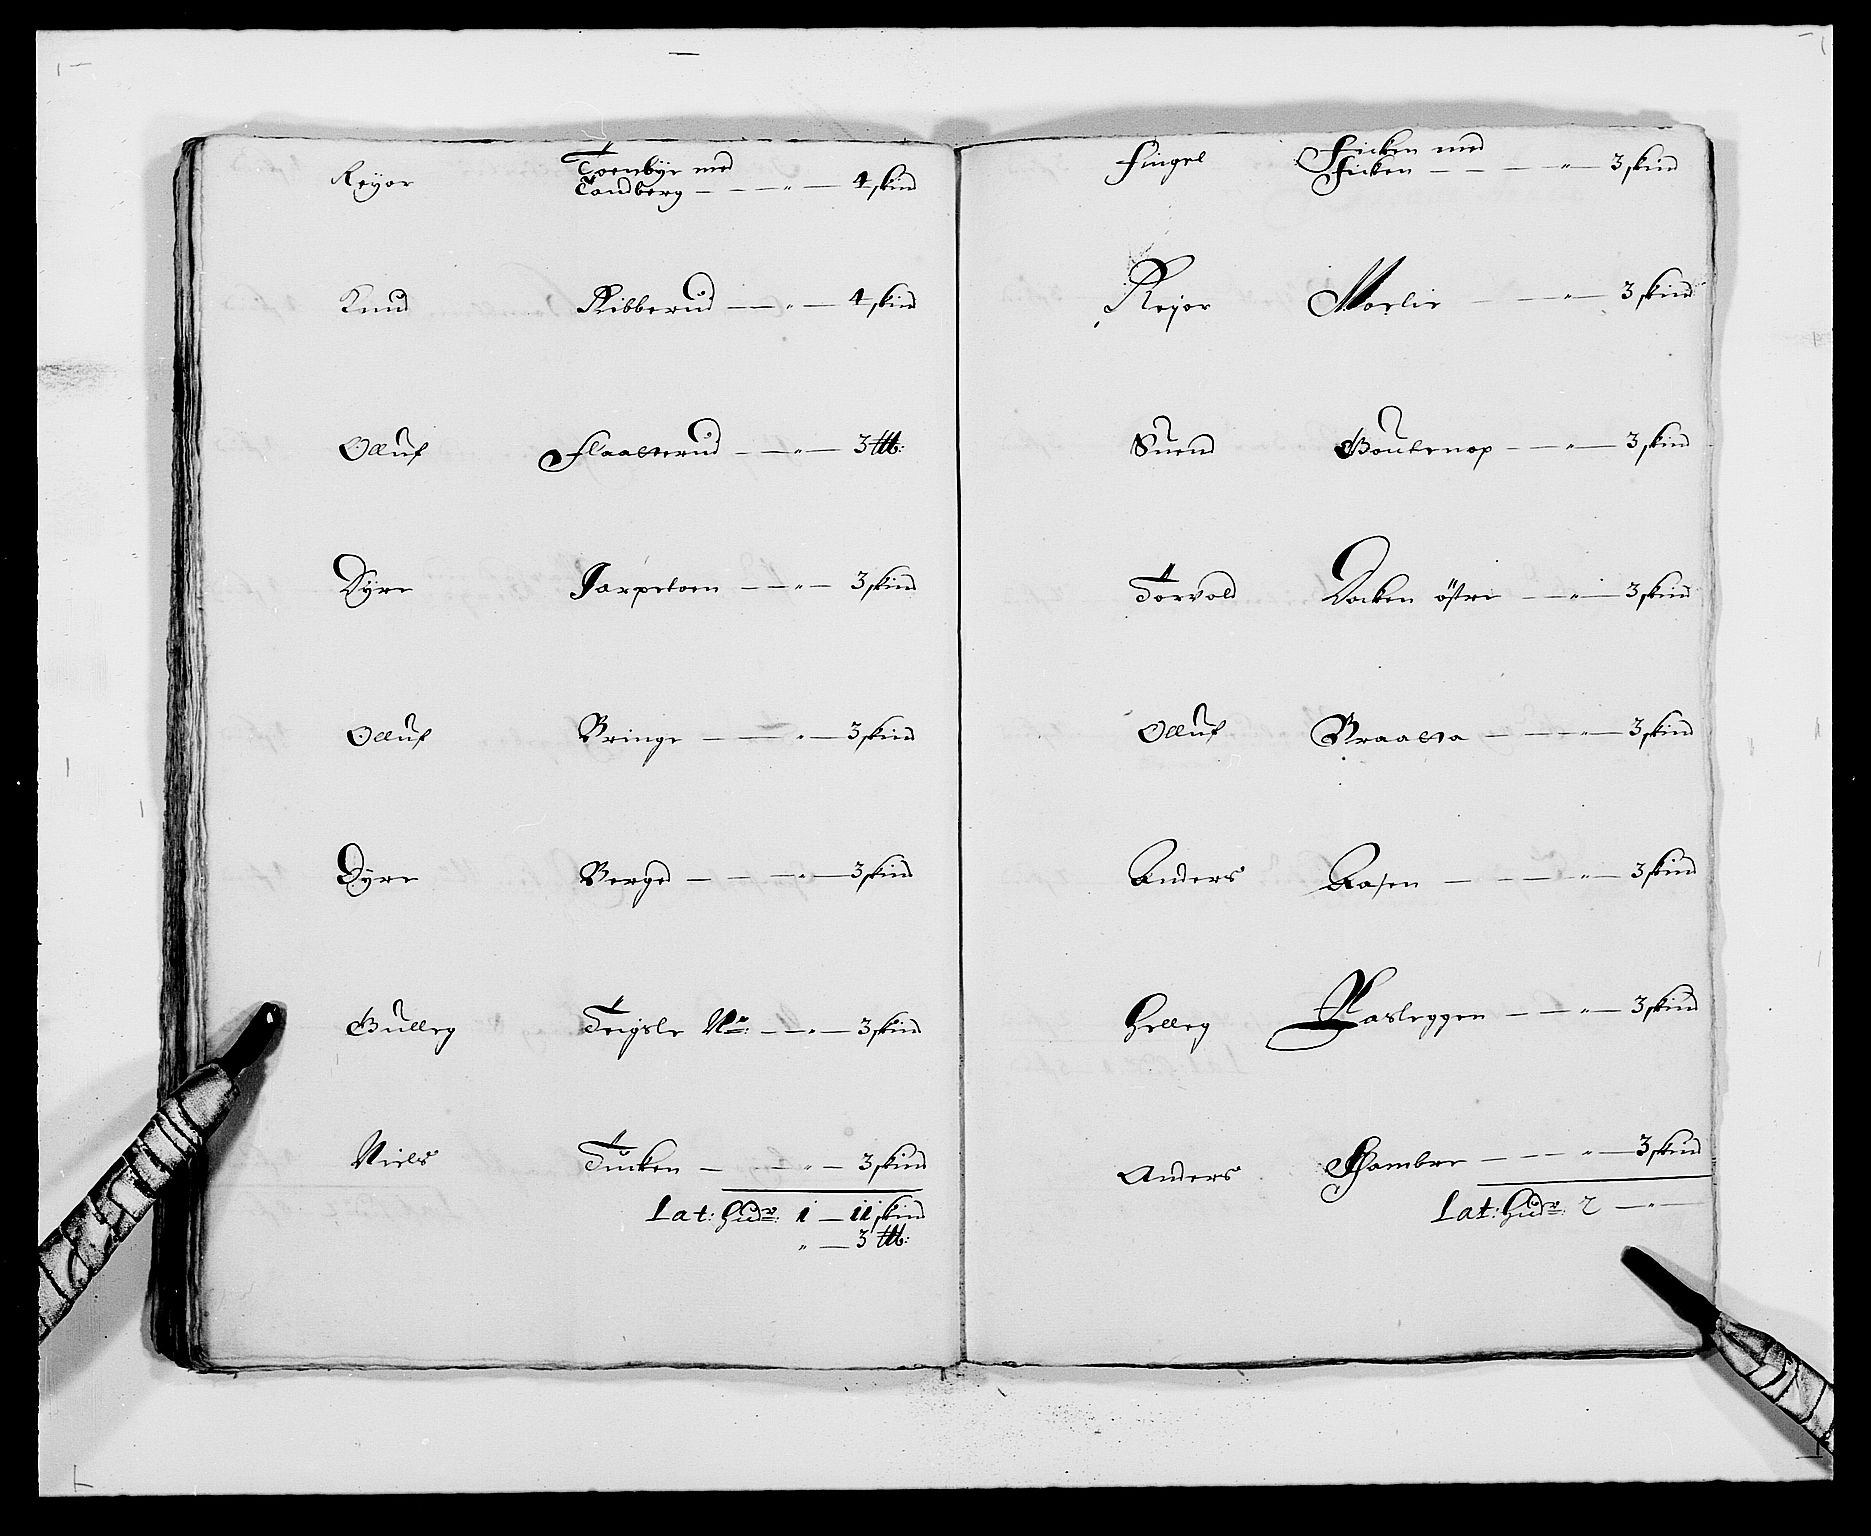 Reÿer Toenbÿe med
Tandberg — — — „ — 4 skind
Knud Ribberud — — „ — 4 skind
Olluf Flaaterud — — „ — 3 ℔:
Dÿre Jarpetoen — — „ — 3 skind
Olluf Bringe — — „ — 3 skind
Dÿre Berged — — — „ — 3 skind
Gulleg Teigsle — — „ — 3 skind
Niels Tucken — — „ — 3 skind
Lat: hudr: 1 — 11 skind
„ — 3 ℔:
Fingal Ficken med
Ficken — — — „ — 3 skind
Rejer Moelie — — „ — 3 skind
Suend — — „ — 3 skind
Torvold Docken östre — — „ — 3 skind
Olluf Braata — — — „ — 3 skind
Anders Aasen — — — „ — 3 skind
Helleg Hasleggen — — „ — 3 skind
Anders Hambre — — — „ — 3 skind
Lat: hudr: 2 — „ —